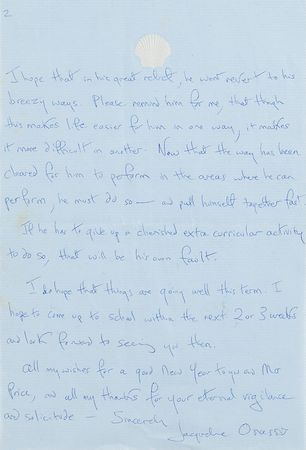 2
I hope that in his great relief, he wont revert to his
breezy ways. Please remind him for me, that though
this makes life easier for him in one way, it makes
it more difficult in another. Now that the way has been
cleared for him to perform in the areas where he can
perform, he must do so — and pull himself together fast.
If he has to give up a cherished extra curricular activity
to do so, that will be his own fault.
I do hope that things are going well this term. I
hope to come up to school within the next 2 or 3 weeks
and look forward to seeing you then.
All my wishes for a good New Year to you and Mrs
Price, and all my thanks for your eternal vigilance
and solicitude — Sincerely
Jacqueline Onassis